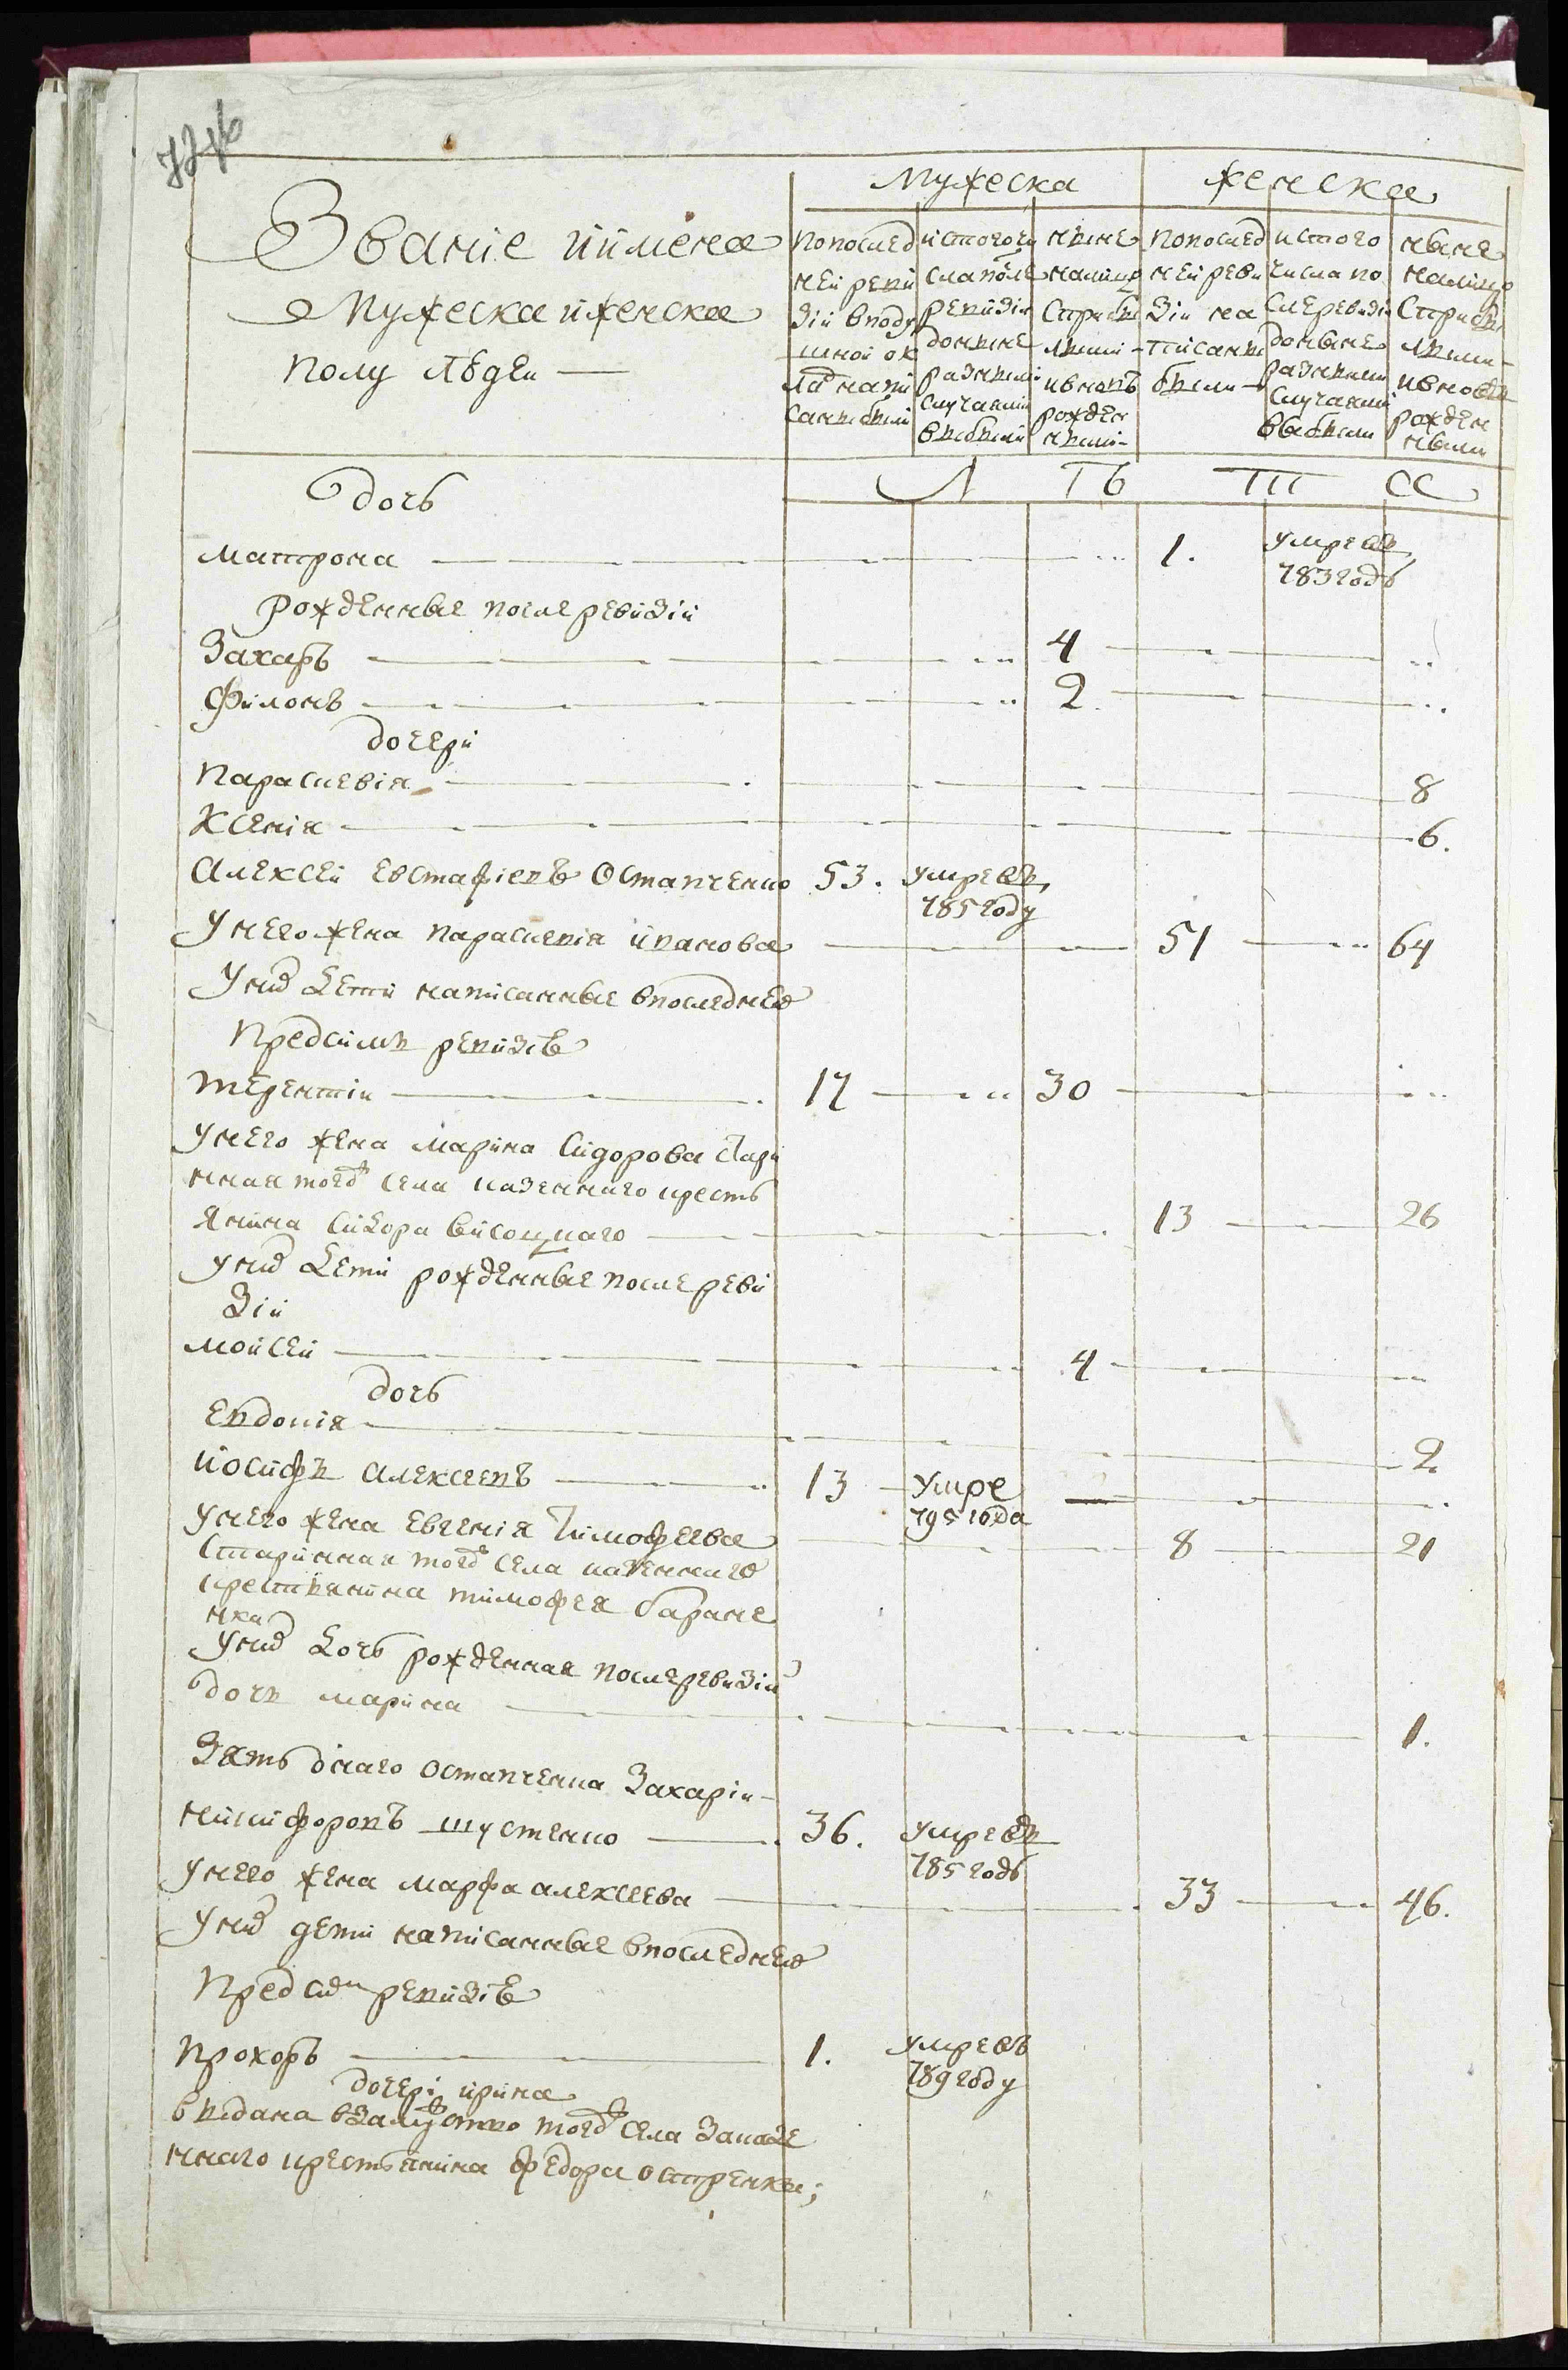 Мужеска женска
Званіе иимена
Мужеска иженска
полу людеи —
попослед ней реви зіи вподу шной ок ладнапи саныбыли
истогочи сла после ревизіи доныне разными случаями выбыли
ныне налицо стрибы лыми ивновь рожден ными
попослед ней реви зіи на писаны были
истого числа по слеревизіи доныне разными случаями выбыли
ныне налицо стрибы лыми ивновь рожден ными
Л ТЬ ТТ СС
дочь
Матрона 1. умре въ
783 годъ
рожденные после ревизіи
Захаръ 4
Филонъ 2.
дочери
Параскевія 8
Ксенія 6.
Алексеи Евстафіевъ Остапченко 53. умре въ
785 году
У него жена Параскевія иванова 51 64
У них дети написанные впоследнеи
Предсимъ ревизіе
Терентіи 17 30
У него жена марина Сидорова стари
нная тогож села казенного кресть
янина Сидора высоцкаго 13 26
у них дети рожденные после реви
зіи
Моисеи 4
дочь
Евдокія 2.
Иосифъ Алексеевъ 13 Умре
795 года
У него жена Евгенія Тимофеева 8 21
Старинная тогож села казенного
крестьянина тимофея баране
нка
У них дочь рожденная послеревизіи
дочъ марина 1.
Зять онаго Остапченка Захаріи
никифоровъ шустенко 36. умре въ
785 годъ
У него жена марфа алексеева 33 46.
У них дети написанные впоследнеи
Пред сим ревизіе
Прохоръ 1. умре въ
789 году
дочері ирина
выдана взамужство тогож села закозе
ннаго крестьянина федора остренка;